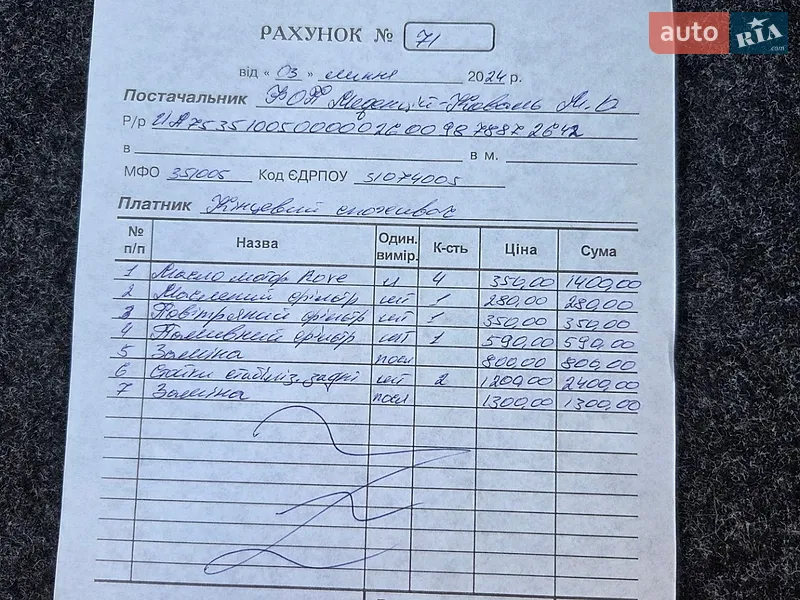 auto RIA .com
РАХУНОК № 71
від « 03 » липня 2024 р.
Постачальник ФОП М. Ю
Р/р UA753510050000026009878872642
в в м.
МФО 351005 Код ЄДРПОУ 31074005
Платник Кінцевий споживач
№ п/п Назва Один. вимір. К-сть Ціна Сума
1 Масло мотор л 4 350,00 1400,00
2 Масляний фільтр шт 1 280,00 280,00
3 Повітряний фільтр шт 1 350,00 350,00
4 Паливний фільтр шт 1 590,00 590,00
5 Заміна посл 800,00 800,00
6 Стійки стабіліз. задні шт 2 1200,00 2400,00
7 Заміна посл 1300,00 1300,00